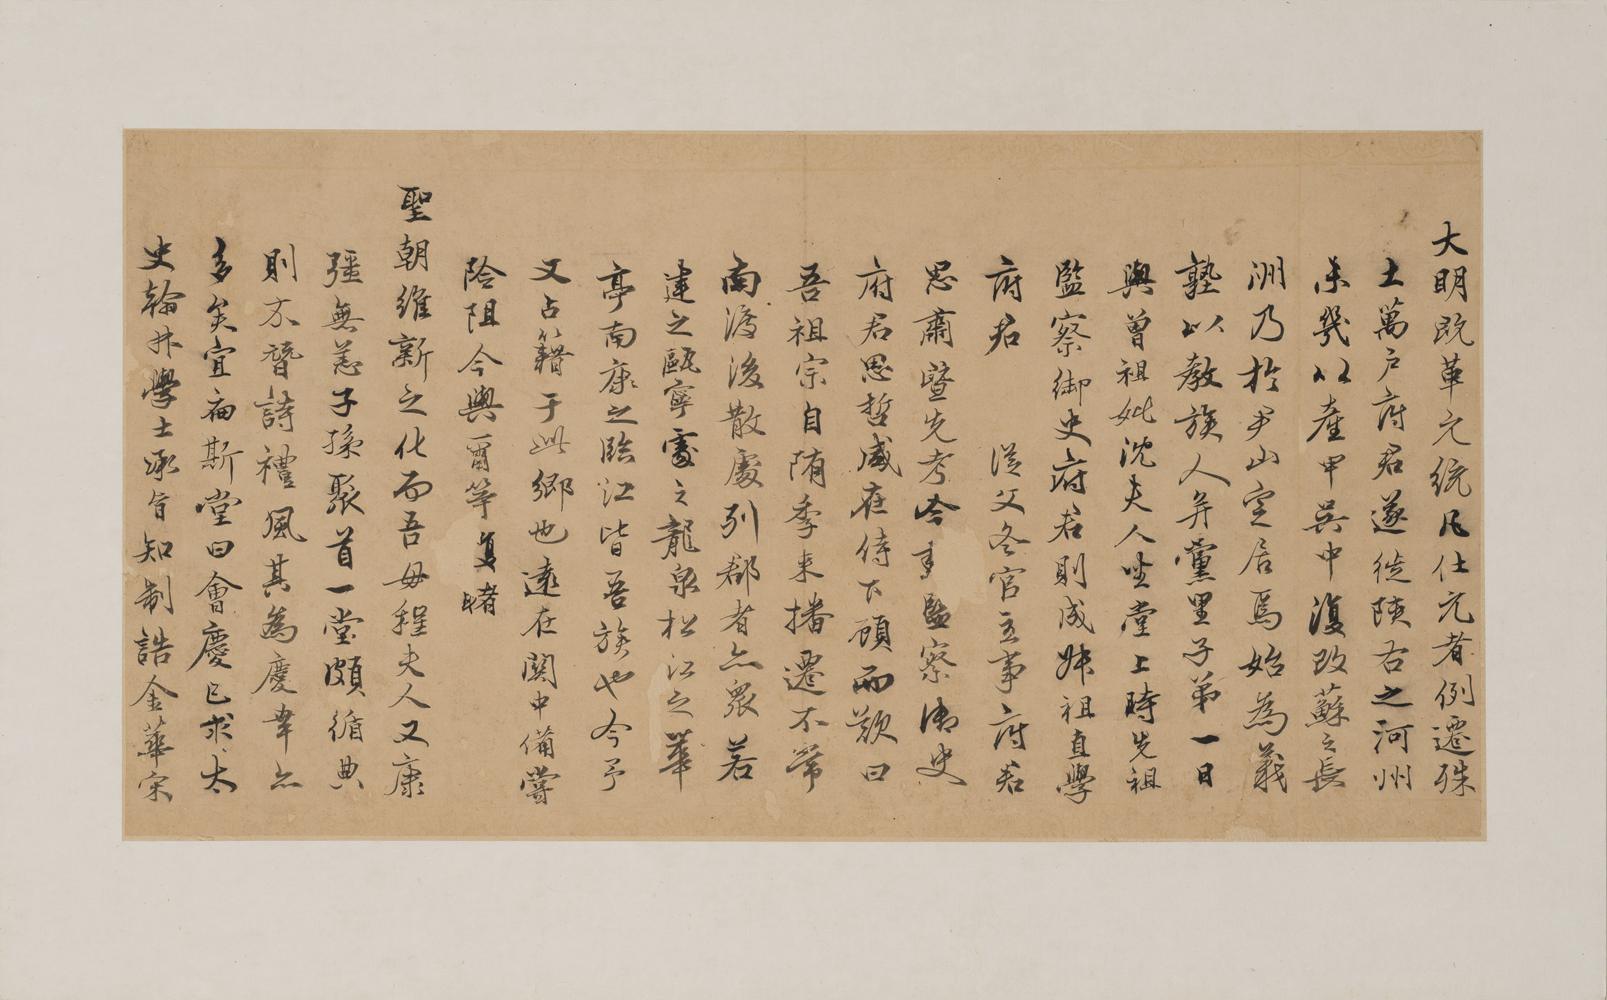 大明既革元統凡仕元者例遷殊
土萬戶府君遂徙陝右之河州
未幾以產甲吳中復改蘇之長
洲乃於尹山定居焉始為義
塾以教族人并黨里子弟一日
與曾祖妣沈夫人坐堂上時先祖
監察御史府君則成姊祖直學
府君 從父冬官主事府君
思肅暨先考今贈監察御史
府君思哲咸在侍下顧而歎曰
吾祖宗自隋季來播遷不常
南渡後散處列郡者亦眾若
建之甌寧處之龍泉松江之華
亭南康之臨江皆吾族也今予
又占籍于此鄉也遠在關中備嘗
險阻今與爾等復睹
聖朝維新之化而吾母程夫人又康
彊無恙子孫聚首一堂頗循典
則亦暨詩禮風其為慶幸亦
多矣宜扁斯堂曰會慶已求太
史翰林學士承旨知制誥金華宋